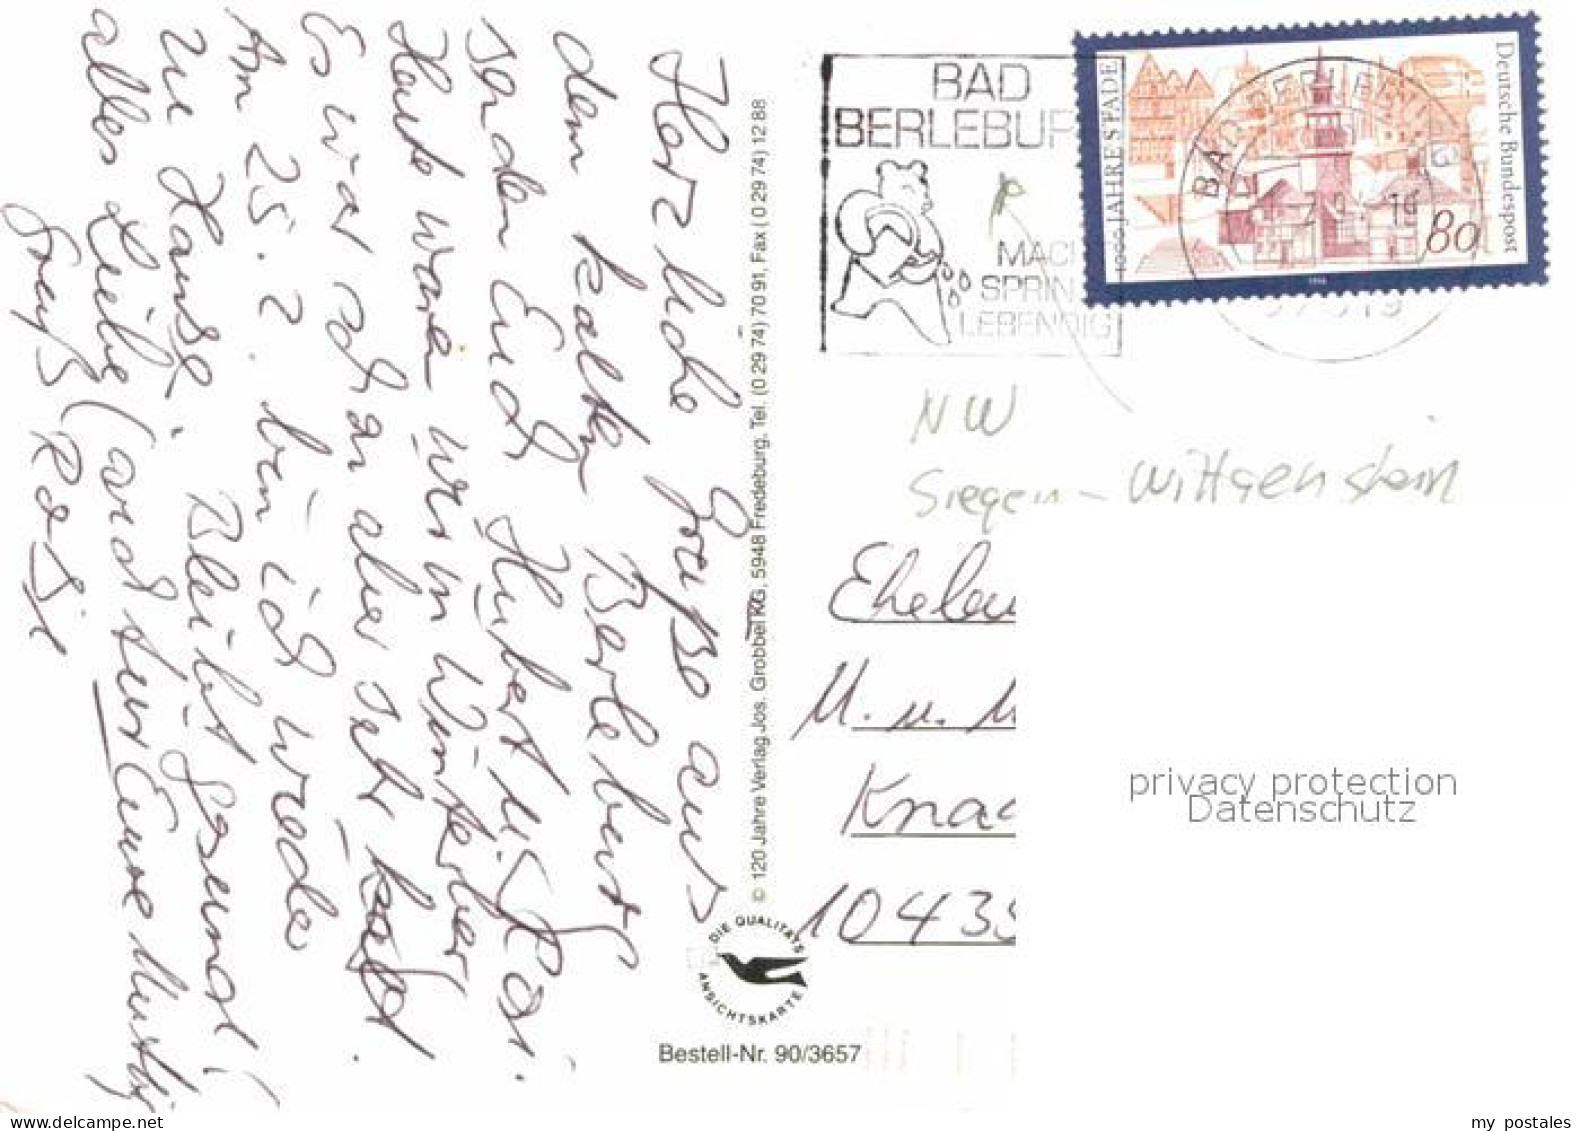 Herzliche Grüße aus
dem kalten Berleburg
senden Euch Hubert u.
Heute waren wir in Winterberg
Es war schön aber sehr kalt.
Am 25.2. bin ich wieder
zu Hause. Bleibt gesund!
alles Liebe (auch
Gruß Rosie
© 120 Jahre Verlag Jos. Grobbel KG, 5948 Fredeburg, Tel. (0 29 74) 70 91, Fax (0 29 74) 12 88
DIE QUALITÄTS
ANSICHTSKARTE
Bestell-Nr. 90/3657
BAD
BERLEBUR
MACH
SPRIN
LEBENDIG
1000 JAHRE STADE
Deutsche Bundespost
80
1994
BAD BERLEBURG
NW
Siegen - Wittgenstein
Eheleu
M. u. M
Knac
10439
privacy protection
Datenschutz
www.delcampe.net
my postales